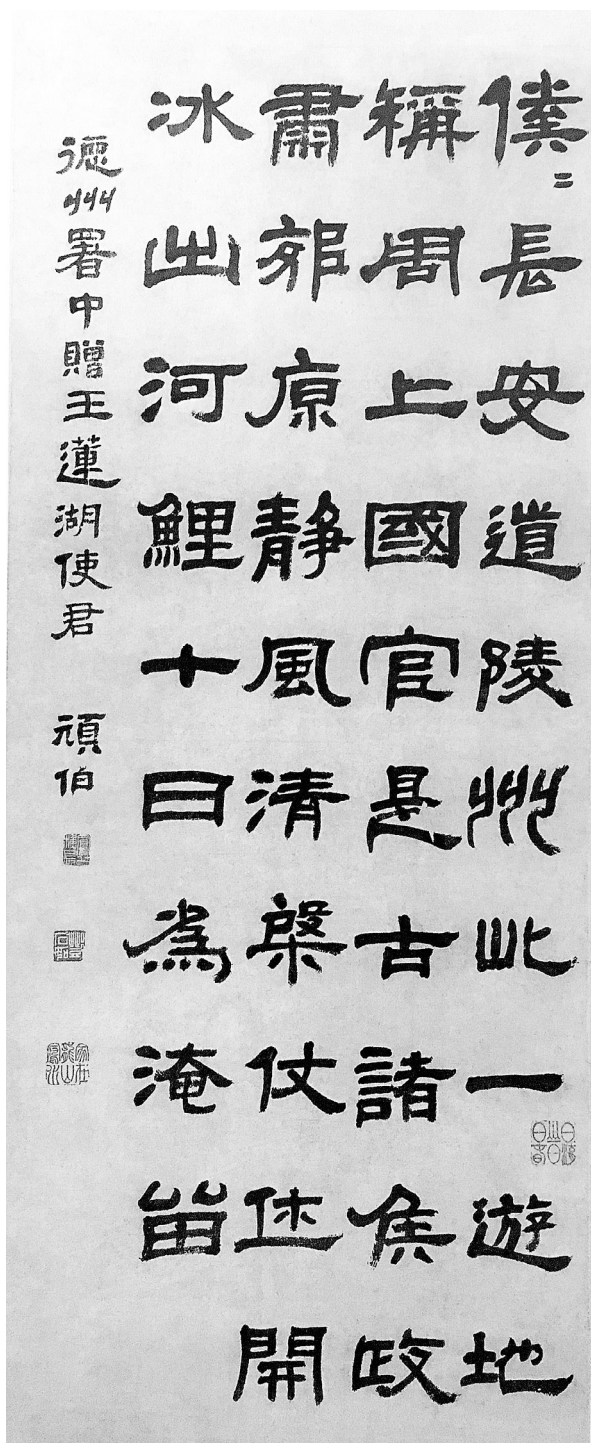 僕〻長安道陵州此一遊地
稱周上國官是古諸侯政
肅郊原静風清棨仗休開
冰出河鯉十日為淹留
德州署中贈王蓮湖使君 頑伯